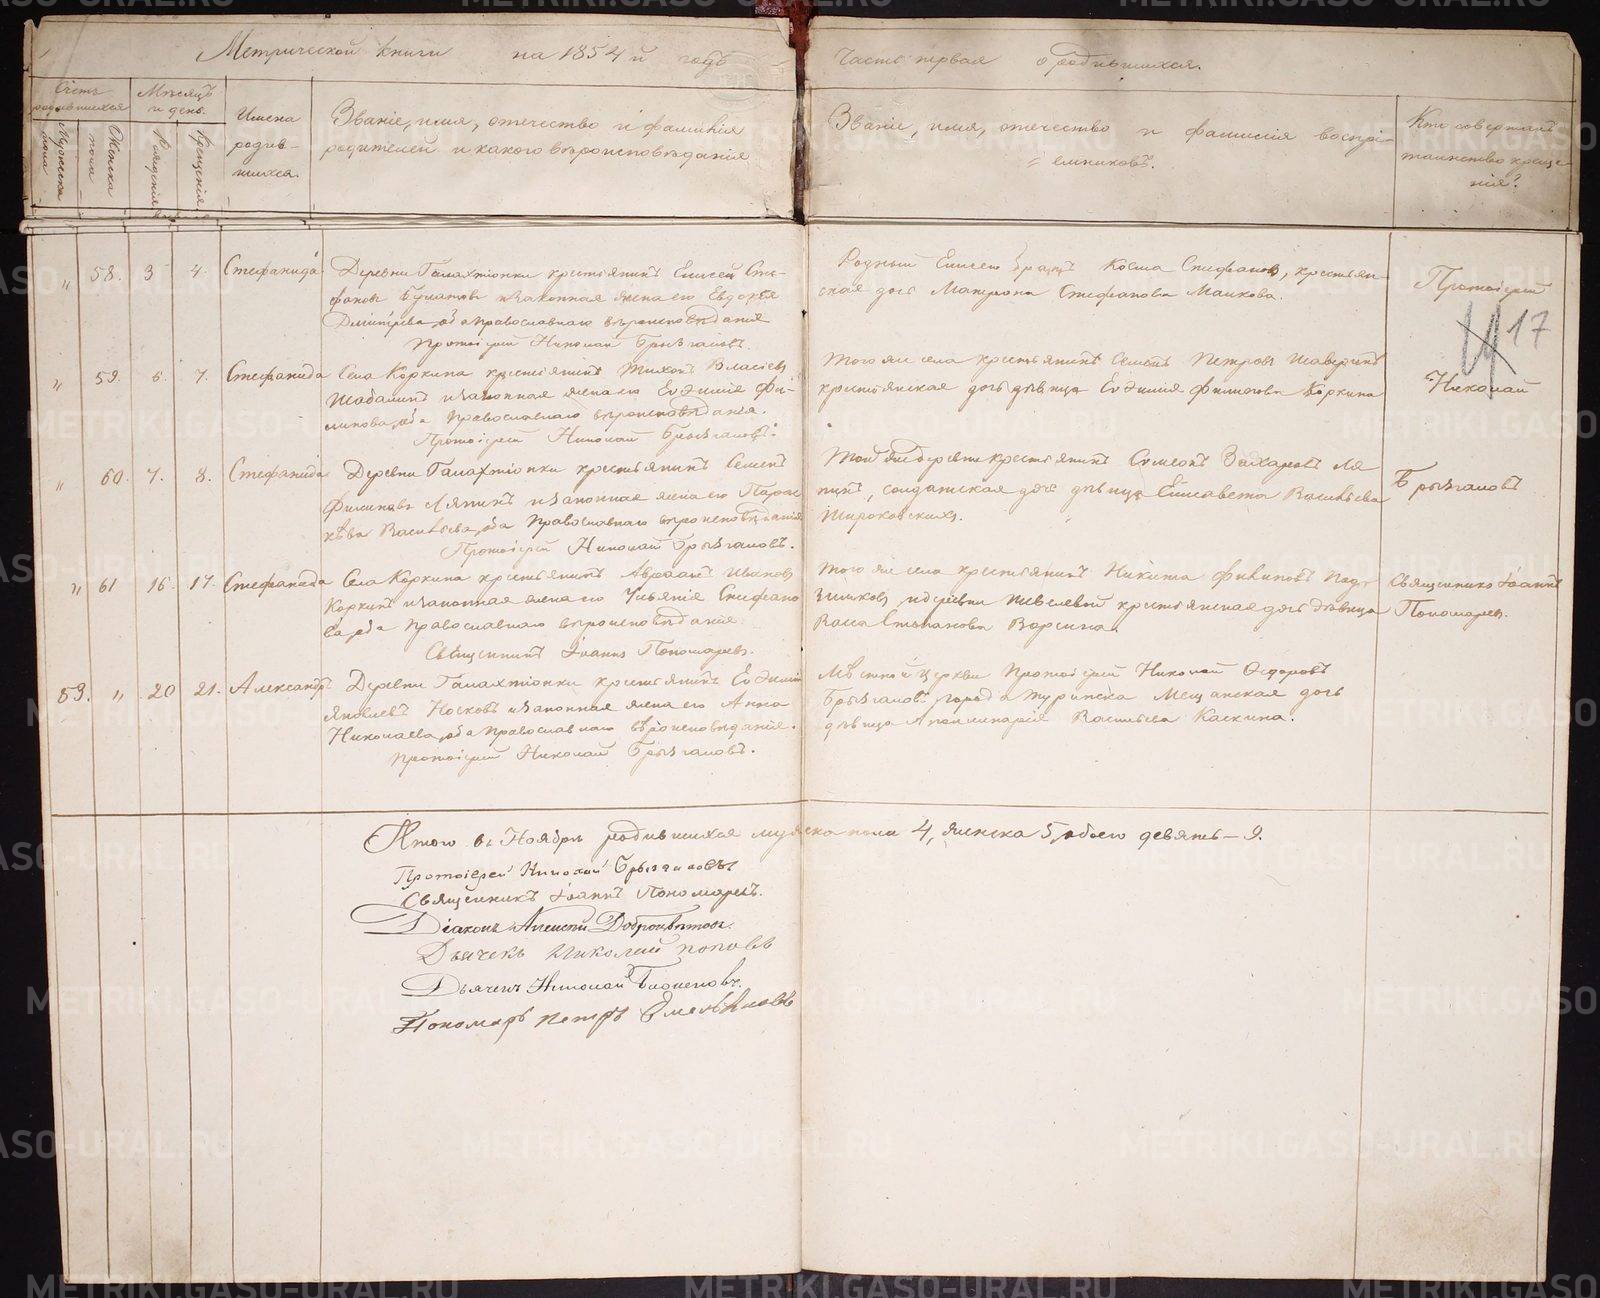 Метрической книги на 1854й годъ
Часть первая о родившихся.
Счетъ родившихся
Мужеска пола
Женска пола
Мѣсяцъ и день.
Рожденія
Крещенія
Имена
родив-
шихся.
Званіе, имя, отечество и фамилія
родителей и какого вѣроисповѣданія
Званіе, имя, отечество и фамилія воспрі-
емниковъ.
Кто совершалъ
таинство креще-
нія?
„ 58. 3 4. Стефанида
Деревни Галактіонки крестьянинъ Елисей Сте-
фановъ и законная жена его Евдокія
Дмитріева, оба православнаго вѣроисповѣданія
Протоіерей Николай Брызгаловъ.
Родный Елисею братъ Косма Стефановъ, крестьян-
ская дочь Матрона Стефанова
Протоіерей
17
„ 59. 6. 7. Стефанида
Села Коркина крестьянинъ Тихонъ Власіевъ
и законная жена его Евфимія Фи-
липова, оба Православнаго вѣроисповѣданія.
Протоіерей Николай Брызгаловъ.
Того же села крестьянинъ Петровъ
крестьянская дочь дѣвица Евфимія Коркина
Николай
„ 60. 7. 8. Стефанида
Деревни Галактіонки крестьянинъ Семенъ
Филиповъ Ляпинъ и законная жена его Парас-
кѣва Васильева, оба Православнаго вѣроисповѣданія
Протоіерей Николай Брызгаловъ.
Той же деревни крестьянинъ Захаровъ Ля
пинъ, солдатская дочь дѣвица Елисавета Васильева
Широковскихъ.
Брызгаловъ
„ 61 16. 17. Стефанида
Села Коркина крестьянинъ Авраамъ Ивановъ
Коркинъ и законная жена его Ульянія Стефано
ва, оба Православнаго вѣроисповѣданія.
Священникъ Іоаннъ Пономаревъ.
Того же села крестьянинъ Никита Филиповъ
и деревни крестьянская дочь дѣвица
Васса Степанова
Священникъ Іоаннъ
Пономаревъ.
53. „ 20 21. Александръ
Деревни Галактіонки крестьянинъ Евфимій
Яковлевъ Носковъ и законная жена его Анна
Николаева, оба Православнаго вѣроисповѣданія.
Протоіерей Николай Брызгаловъ.
Мѣстной церкви Протоіерей Николай Ѳедоровъ
Брызгаловъ, города Туринска Мещанская дочь
дѣвица Аполлинарія Васильева Каскина.
Итого въ Ноябрѣ родившихся мужеска пола 4, женска 5, обоего девять – 9.
Протоіерей Николай Брызгаловъ
Священникъ Іоаннъ Пономаревъ.
Діаконъ Алексей Доброцвѣтовъ.
Дьячекъ Николай Поповъ
Дьячекъ Николай
Пономарь Петръ Емельяновъ
METRIKI.GASO-URAL.RU